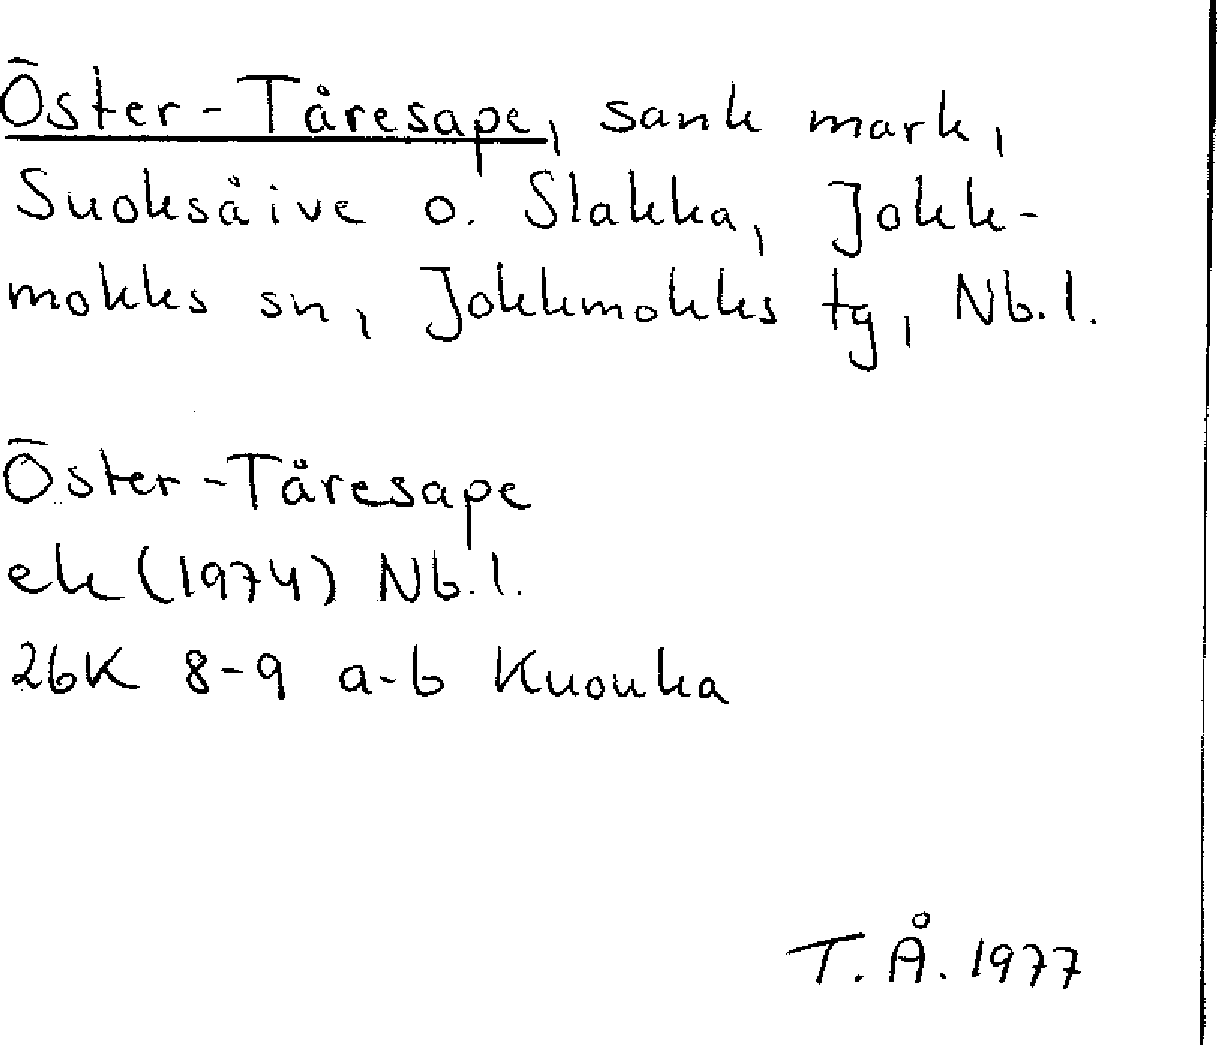 Öster-Tåresape, sank mark,
Suoksåive o. Slakka, Jokk-
mokks sn, Jokkmokks tg, Nb.l.
Öster-Tåresape
ek (1974) Nb.l.
26K 8-9 a-b Kuouka
T.Å. 1977